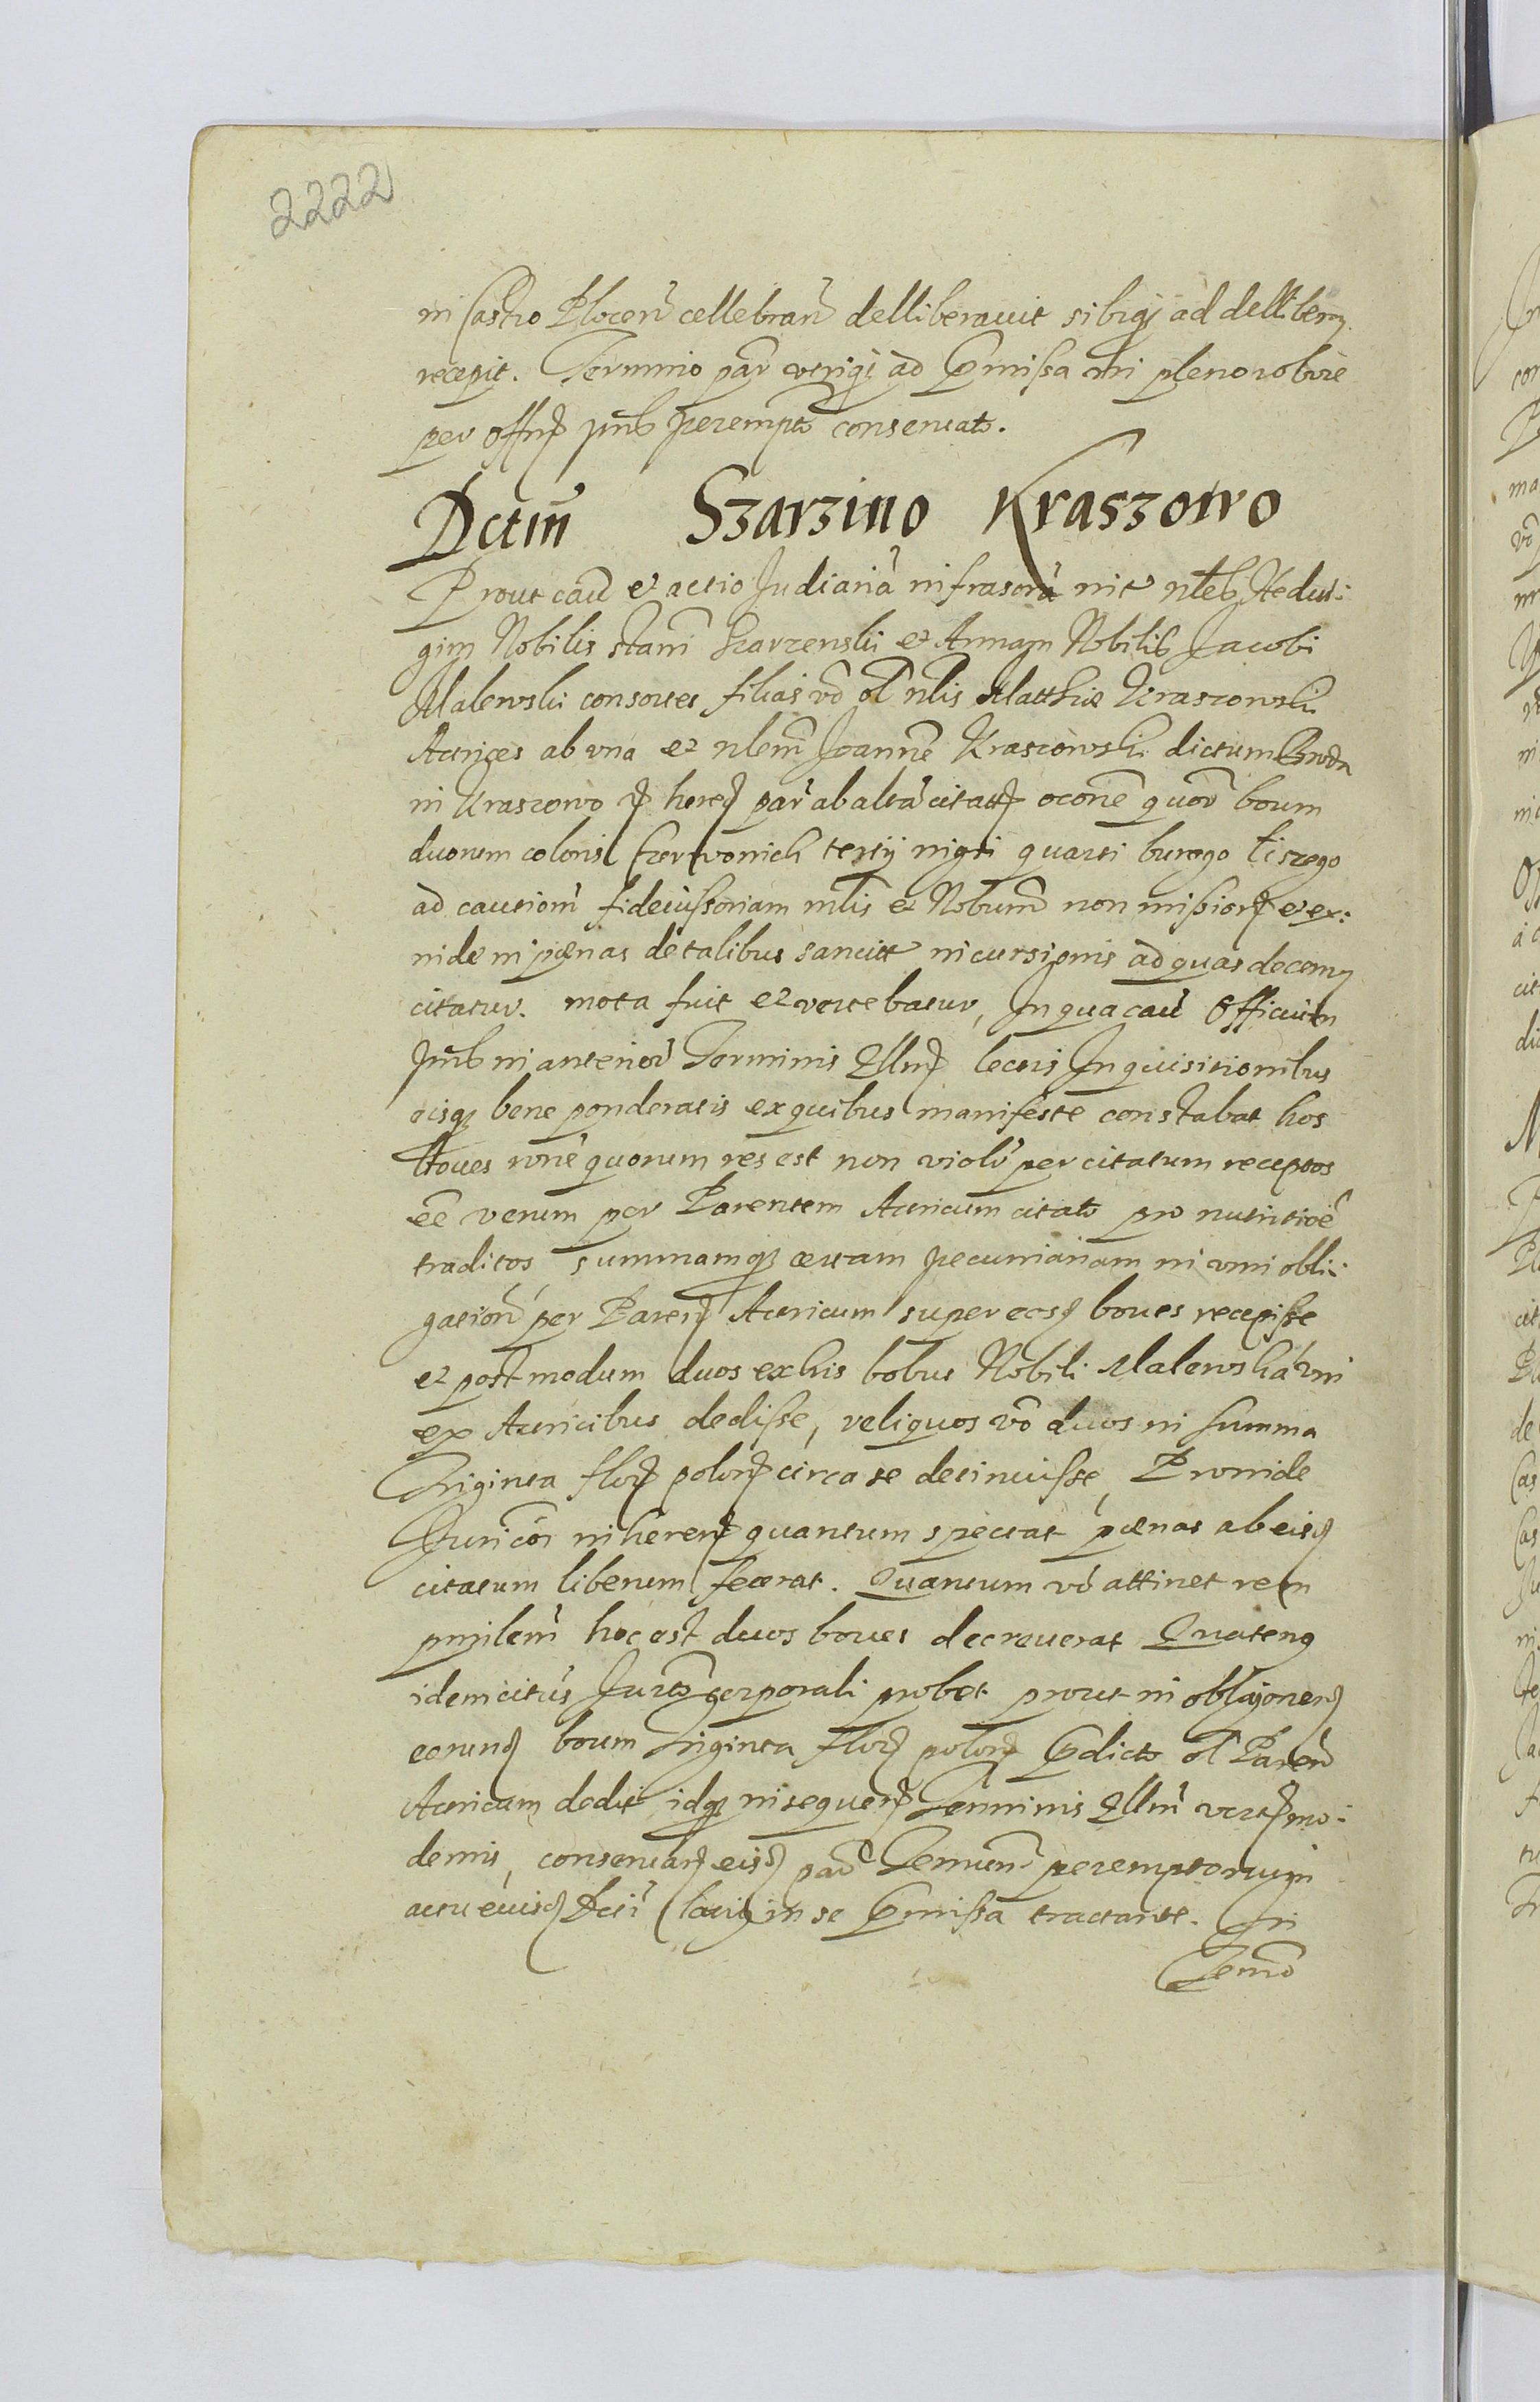 2222
in Castro Plocen̄ cellebran̄ delliberauit sibiq; ad dellibera͂
recepit. Termino par̄ utriq; ad p̄missa in pleno robore
per offm̄ pn̄s perempto conseruato.
Dctm̄ Szarzino Kraszowo
Prout cau͂ et actio Judiaria infrascr̄a int nbles Hedui:
gim Nobilis stani Szarzenski et Annam Nobilis Jacobi
Malewski consortes filias v͂o ol nlis Matthiæ Kraszowski
Actrices ab vna et nblem Joannē Kraszowski dictum
in Kraszowo hered par̄ ab altā citat̄ o͂cone͂ quor̄ boum
duorum coloris Czerwonich tertij nigri quarti burego Liszego
ad cautionē fideiussoriam nlis et Nobium non mission̄ et ex:
inde in pœnas de talibus sancitt incursionis ad quas decem
citatur. mota fuit et vertebatur, In qua cau͂ Officium
pn̄s in anterior̄ Terminis Qllm̄ lectis Inquisitionibus
eisq; bene ponderatis ex quibus manifeste constabat hos
boues rōne quorum res est non violr̄ per citatum receptos
ee͂ verum per Parentem Actricum citato pro nutritioe͂
traditos summamq; certam pecuniariam in vim obli:
gation̄ per Paren̄ Actricum super eosd boues recepisse
et postmodum duos ex his bobus Nobili Malewska vni
ex Actricibus dedisse, reliquos vo͂ duos in summa
Triginta flor̄ polon̄ circa se detinuisse, Proinde
Juri co͂i inheren̄ quantum spectat pœnas ab eisd
citatum liberum fecerat. Quantum vo͂ attinet rem
pn̄ilem̄ hoc est duos boues decreuerat Quatenq
idem citus̄ Jur͂to corporali probet prout in obligonem
eorund boum Triginta flor̄ polon̄ p̄dicto ol Paren̄
Actricum dedit idq; in sequen̄ Terminis Qllm̄ vert̄ mo:
dernis, conseruan̄ eisd par̄ Terminū peremptorium
actu eiusd Dcti latiq in se p̄missa tractante. In
Termo͂